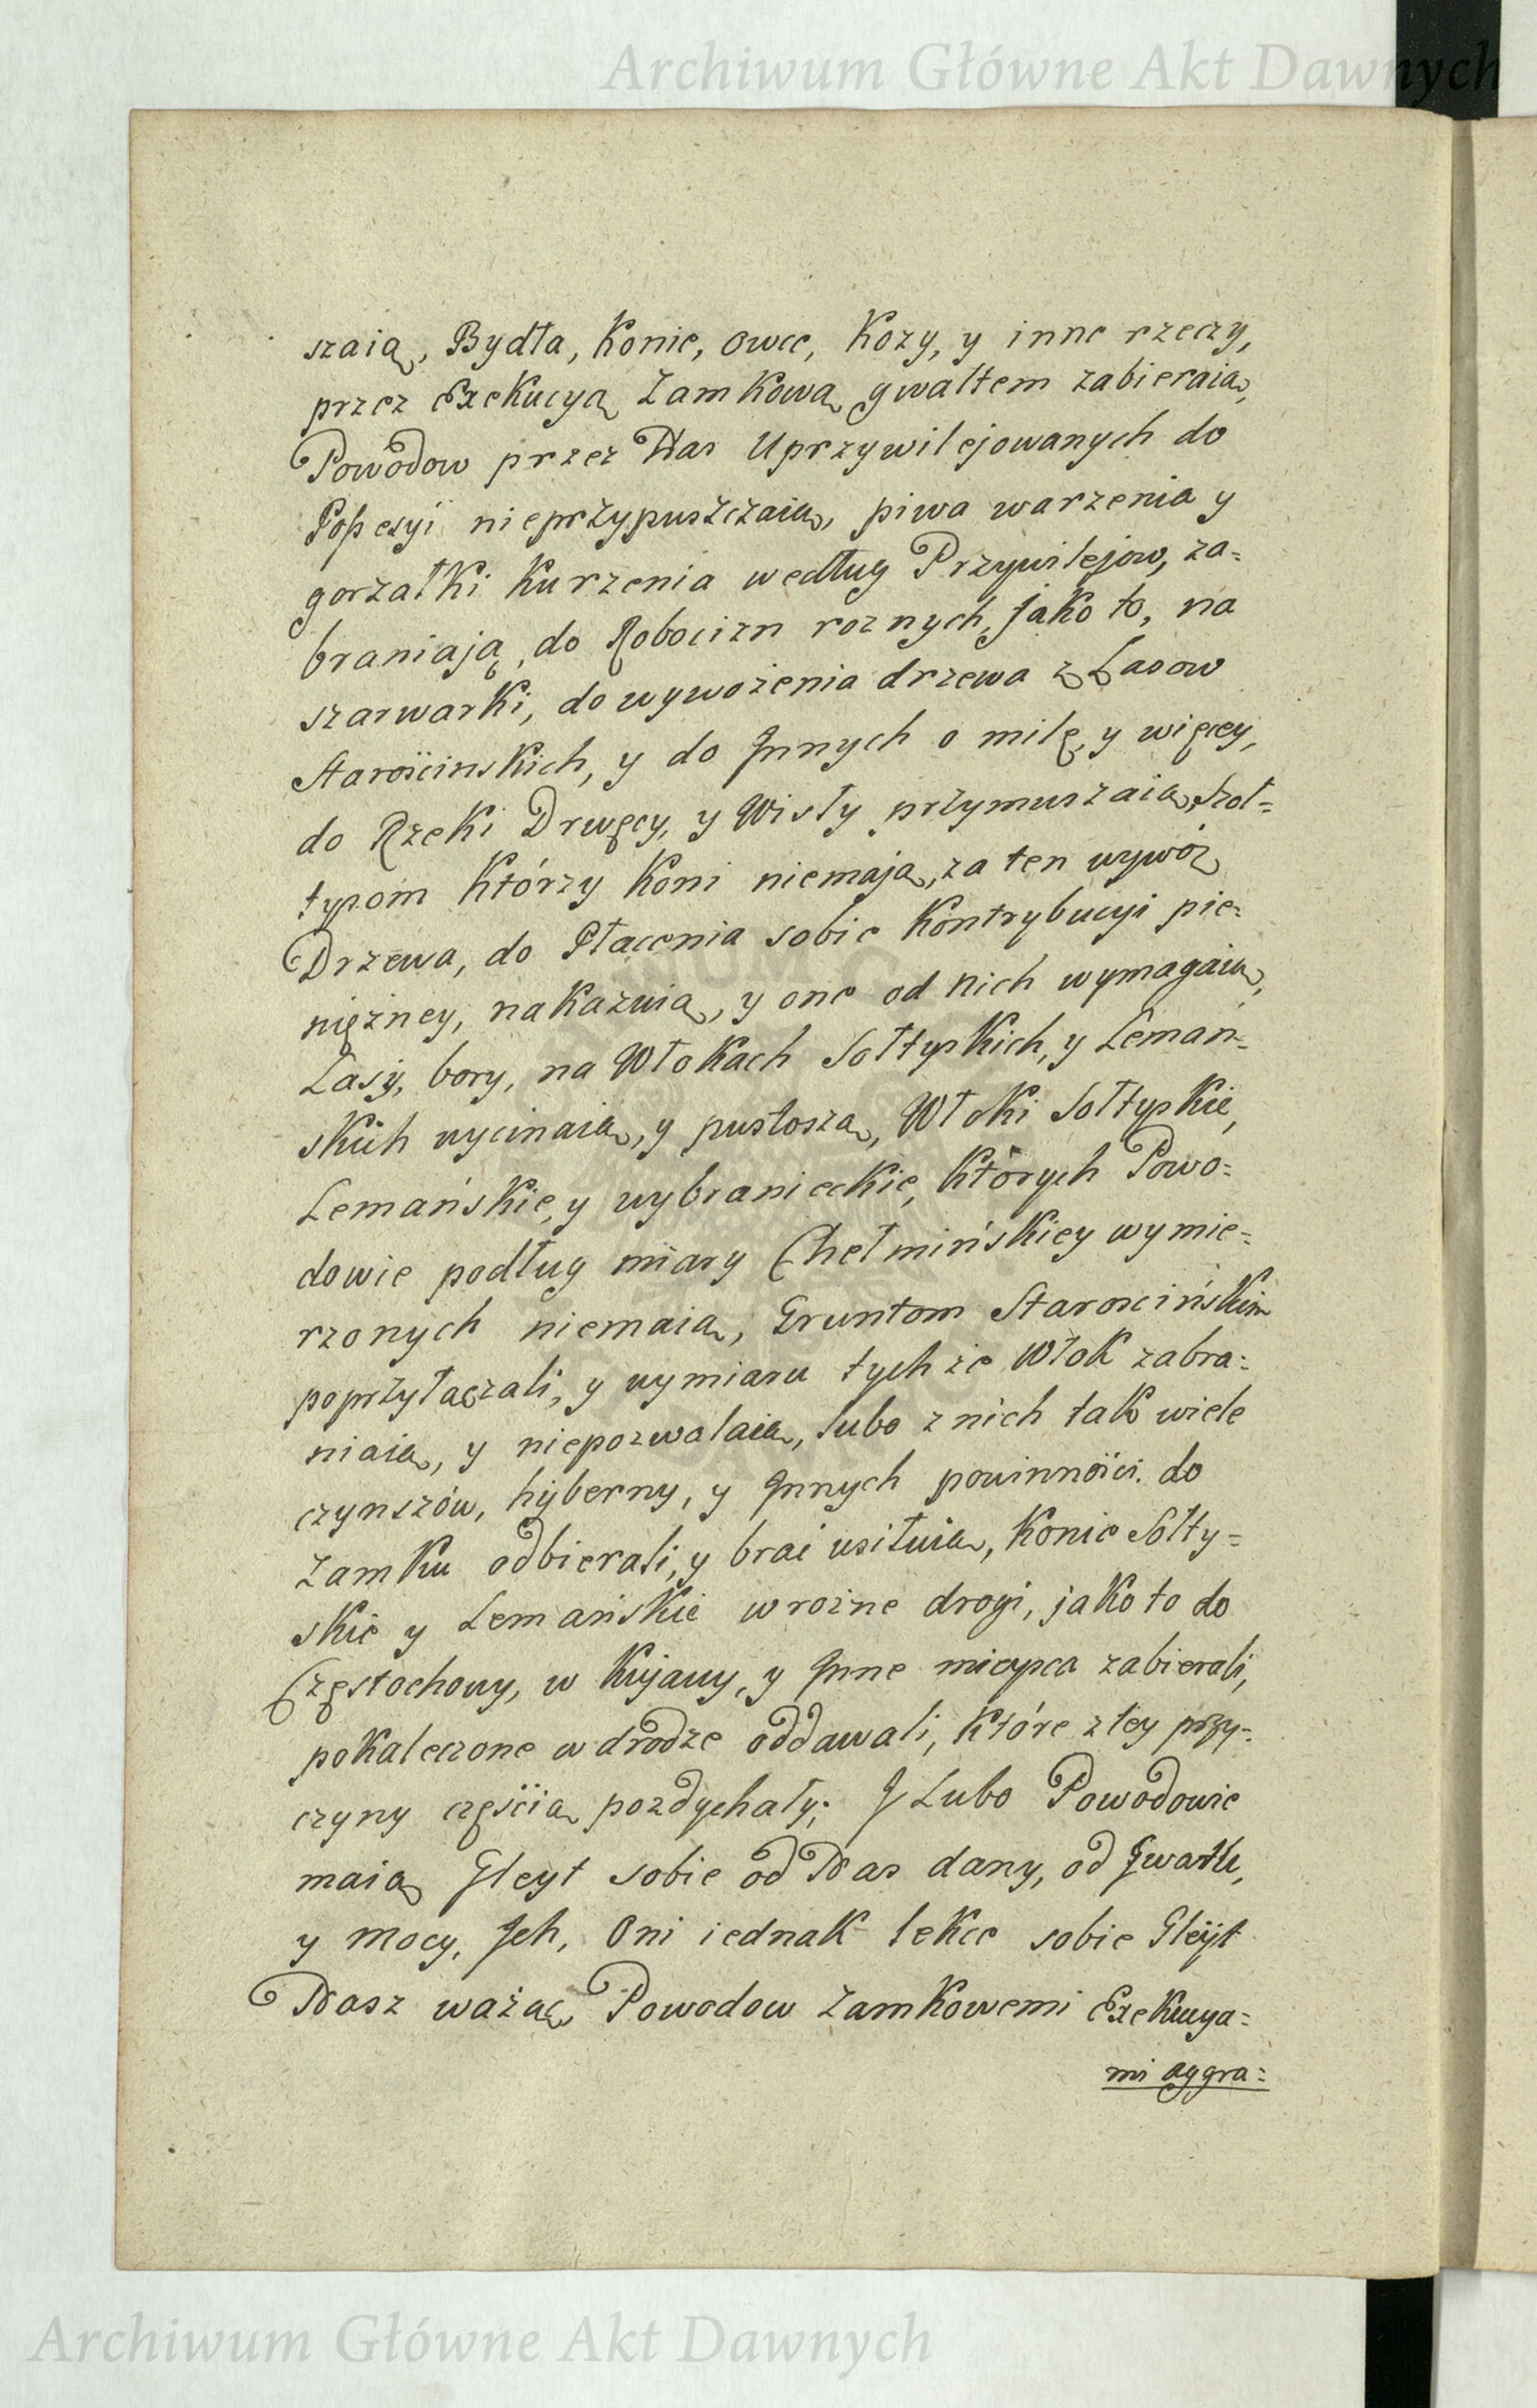 Archiwum Główne Akt Dawnych
szaią, Bydła, Konie, owce, Kozy, y inne rzeczy,
przez Exekucyą Zamkową gwałtem zabieraią,
Powodow przez Nas Uprzywilejowanych do
Poßesyi nieprzypuszczaią, piwa warzenia y
gorzałki Kurzenia według Przywilejow, za=
braniają, do Robocizn roznych, jako to, na
szarwarki, do wywożenia drzewa z Lasow
Starościnskich, y do Jnnych o milę y więcey,
do Rzeki Drwęcy, y Wisły przymuszaią, Szoł=
tysom którzy Koni niemają, za ten wywóz
Drzewa, do Płacenia sobie Kontrybucyi pie=
niężney, nakazuią, y one od nich wymagaią,
Lasy, bory, na Włokach Sołtyskich, y Leman=
skich wycinaią, y pustoszą, Włoki Sołtyskie,
Lemańskie, y wybranieckie, których Powo=
dowie podług miary Chełmińskiey wymie=
rzonych niemaią, Gruntom Starościńskim
poprzyłączali, y wymiaru tychże Włok zabra=
niaią, y niepozwalaią, lubo z nich tak wiele
czynszów, hyberny, y Jnnych powinności do
Zamku odbierali, y brać usiłuią, Konie Sołty=
skie y Lemańskie w rożne drogi, jako to do
Częstochowy, w Kujawy, y Jnne mieysca zabierali,
pokaleczone w drodze oddawali, które z tey przy=
czyny częścią pozdychały; J Lubo Powodowie
maią Gleyt sobie od Nas dany, od Gwałtu,
y mocy, Jch, Oni iednak lekce sobie Gleyt
Nasz ważąc, Powodow Zamkowemi Exekucya=
mi aggra=
Archiwum Główne Akt Dawnych